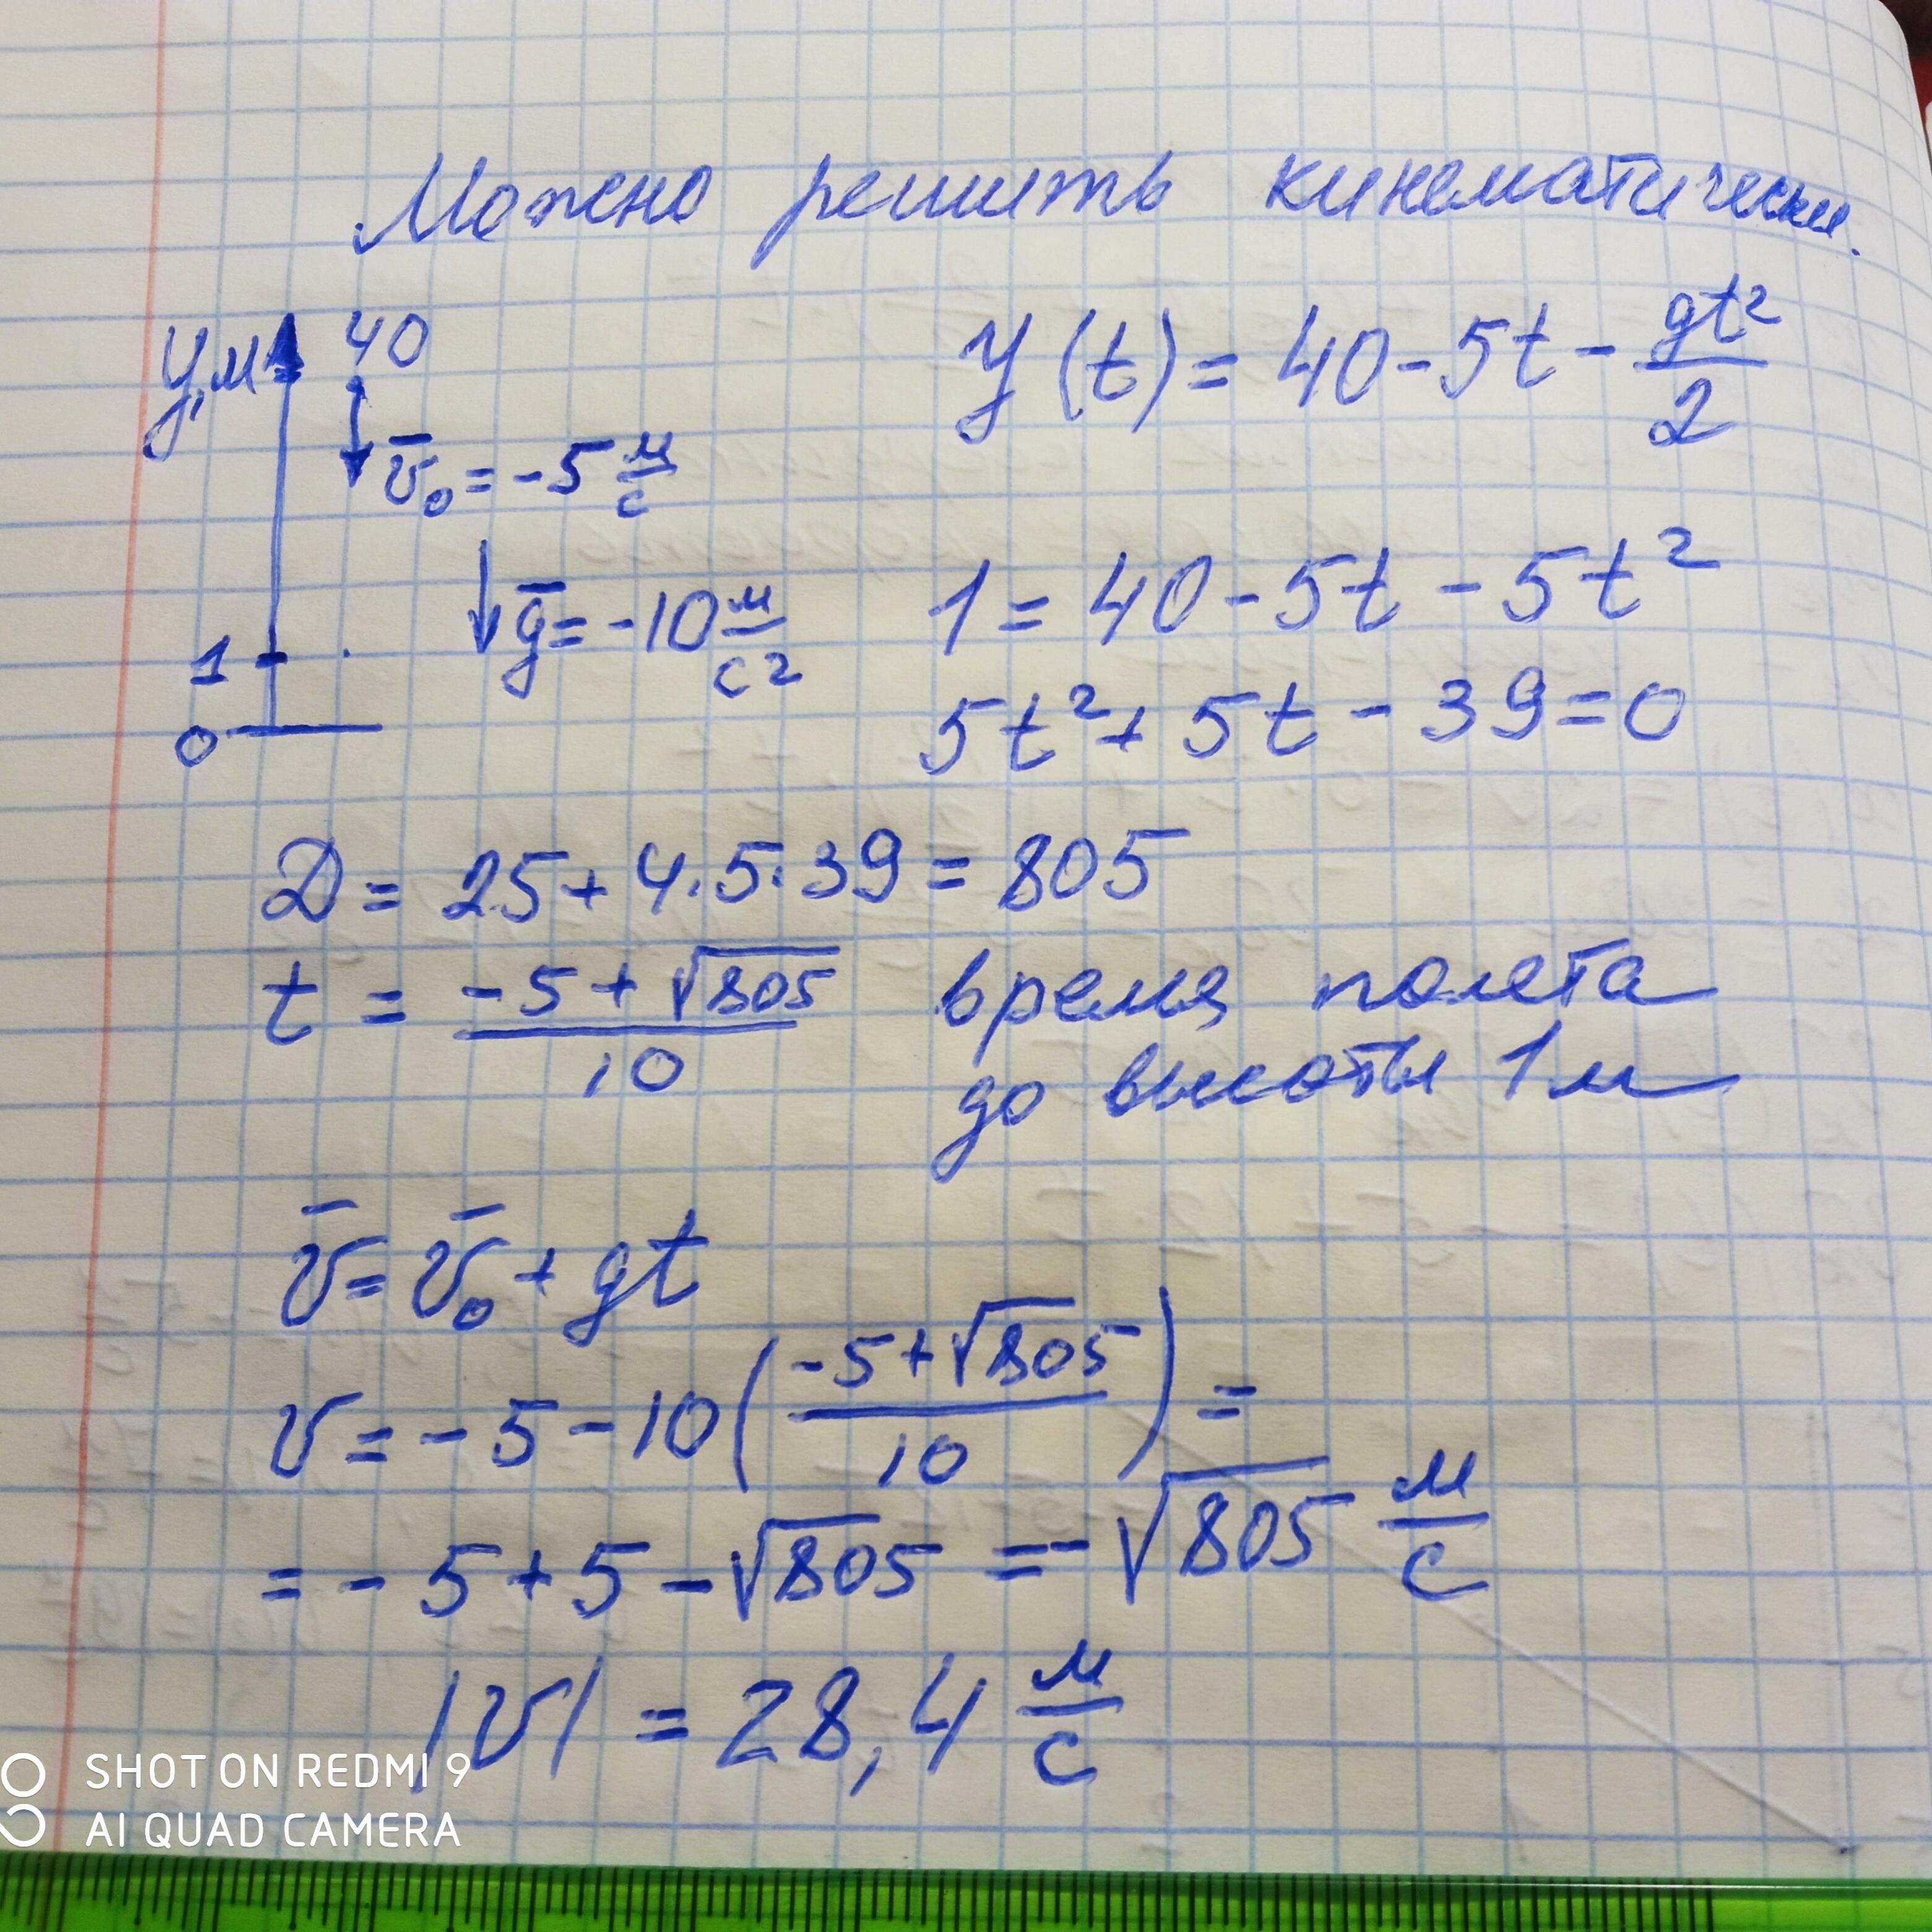 Можно решить кинематически.
y,м 40
v̄₀ = -5 м/с
ḡ = -10 м/с²
1
0
y(t) = 40 - 5t - gt²/2
1 = 40 - 5t - 5t²
5t² + 5t - 39 = 0
D = 25 + 4·5·39 = 805
t = (-5 + √805)/10 время полета
до высоты 1 м
v̄ = v̄₀ + gt
v = -5 - 10((-5 + √805)/10) =
= -5 + 5 - √805 = -√805 м/с
|v| = 28,4 м/с
SHOT ON REDMI 9
AI QUAD CAMERA